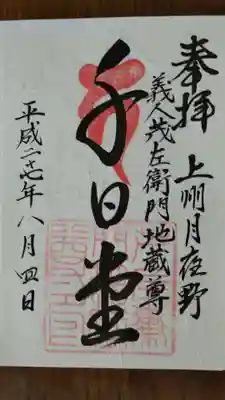 奉拝
上州月夜野
義人茂左衛門地蔵尊
千日堂
平成二十七年八月四日